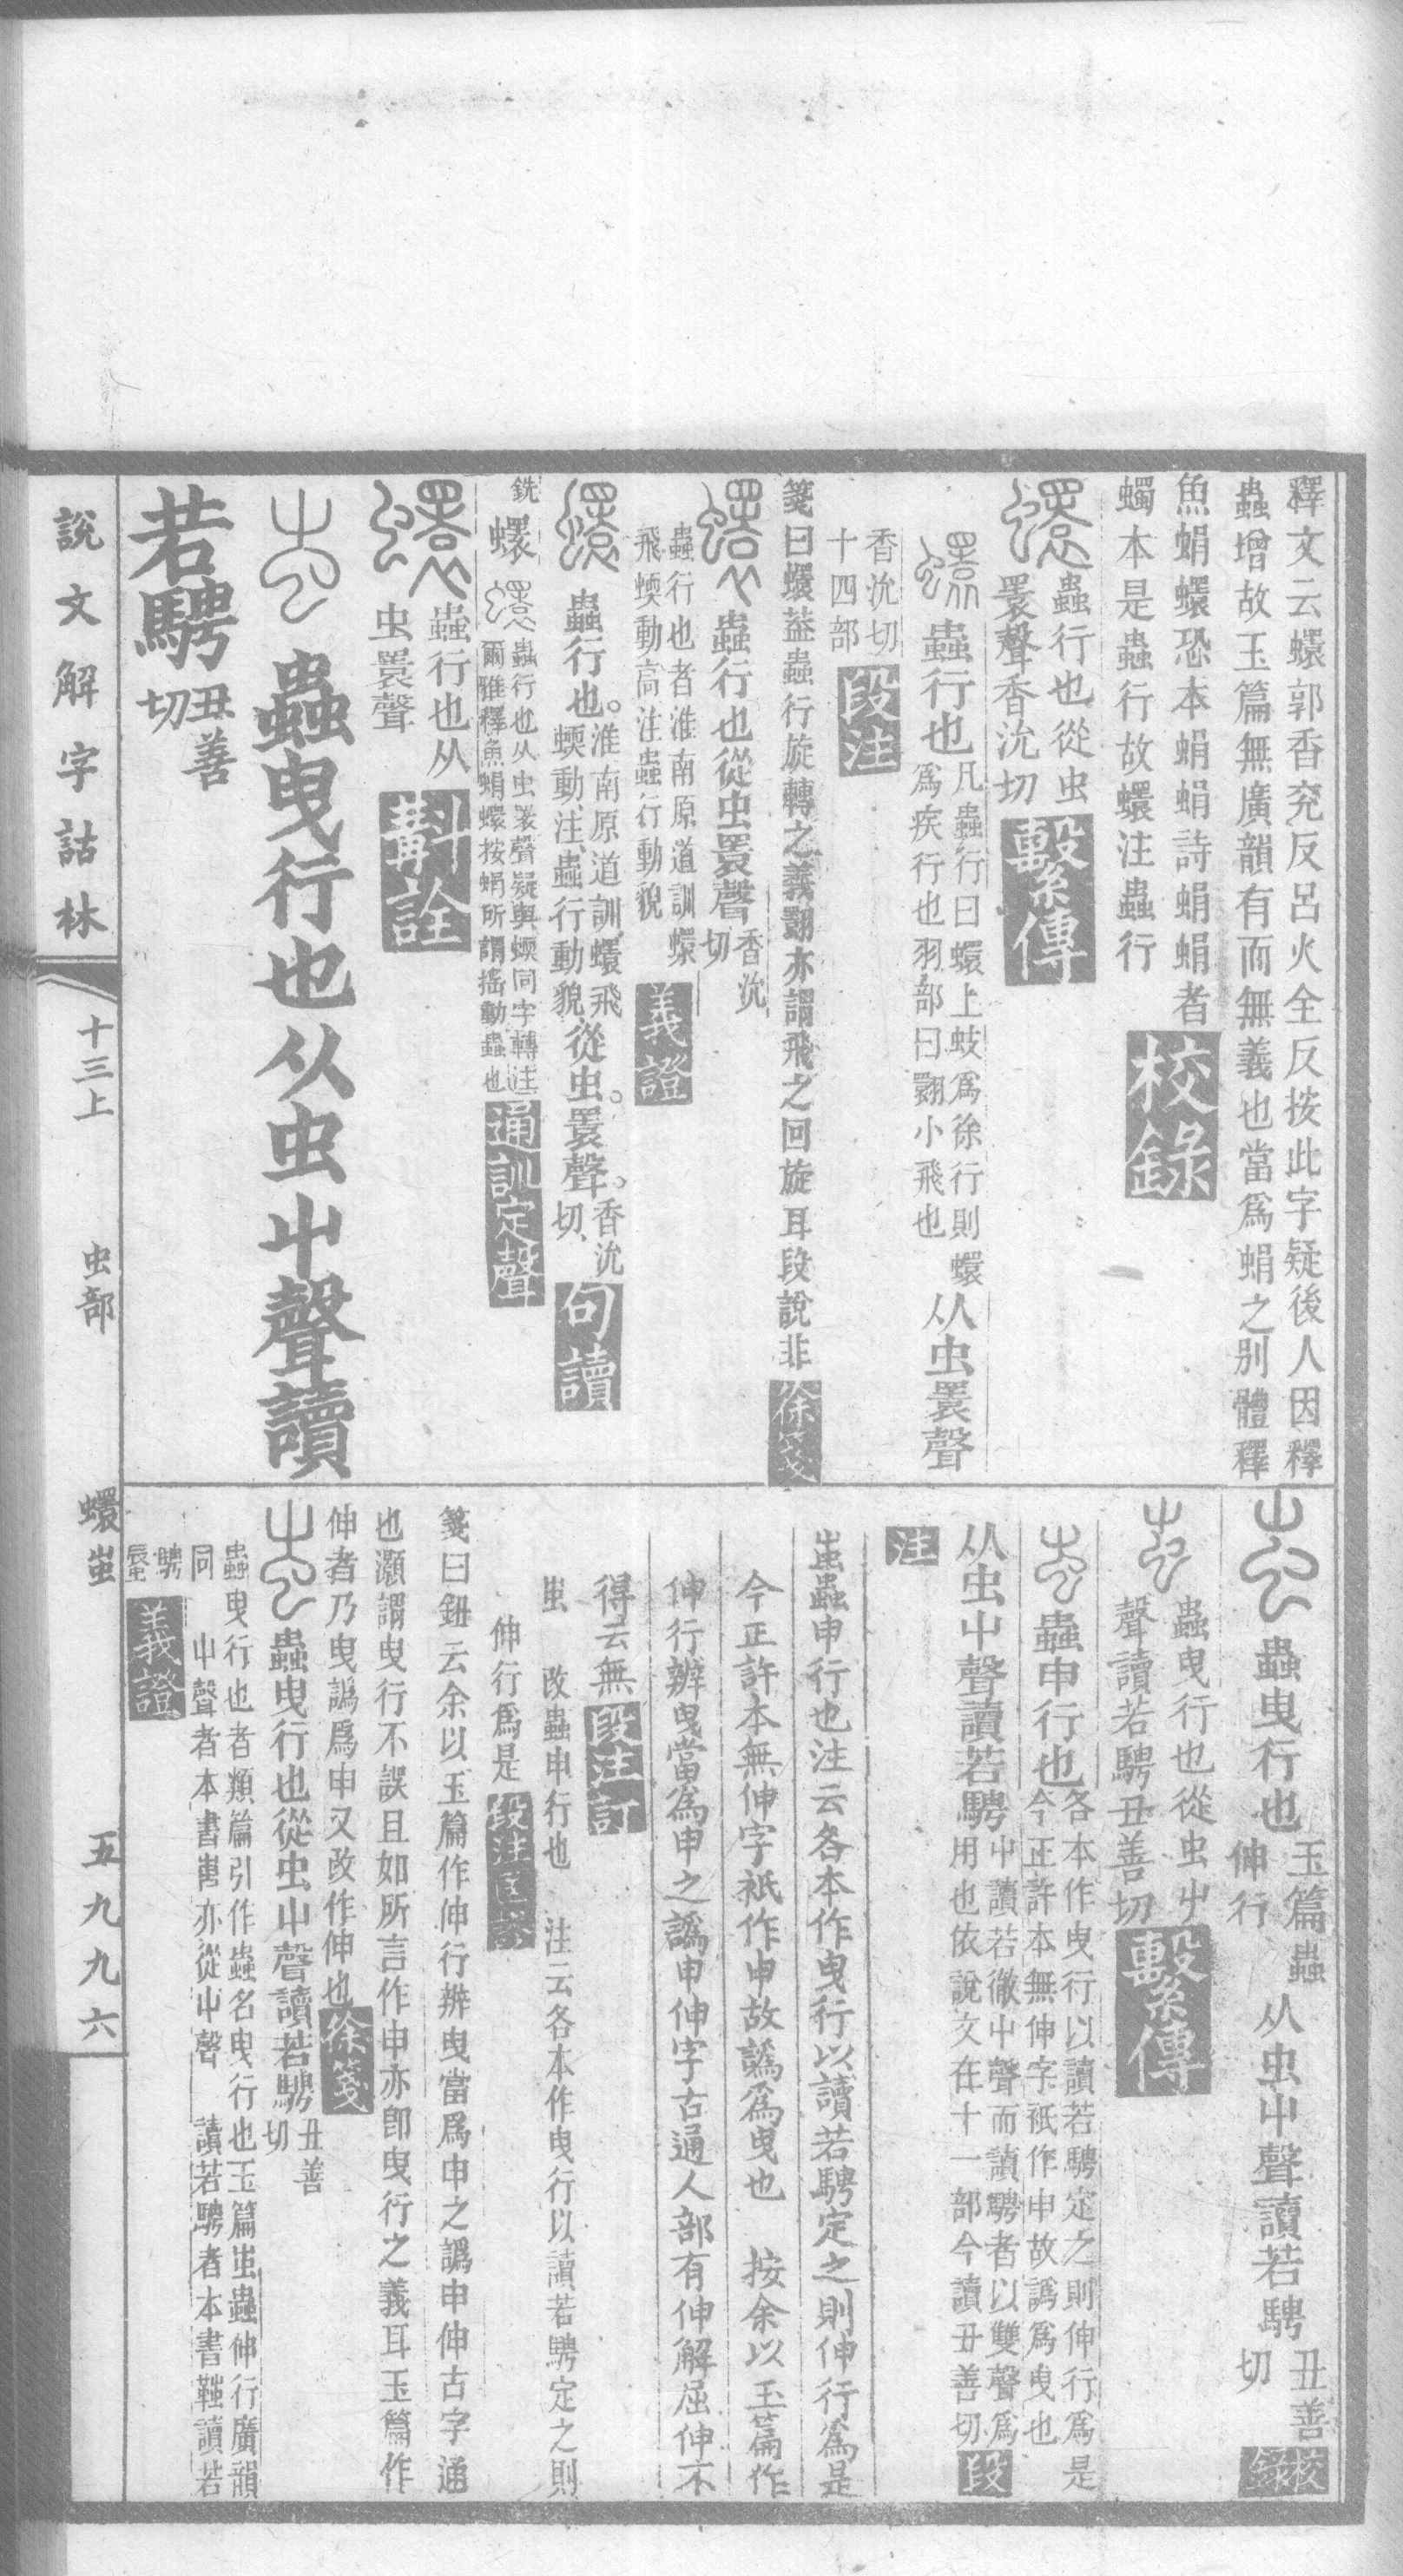 釋文云蠉郭香兖反呂火全反按此字疑後人因釋
蟲增故玉篇無廣韻有而無義也當爲蜎之别體釋
魚蜎蠉恐本蜎蜎詩蜎蜎者
蠋本是蟲行故蠉注蟲行
校錄
蟲行也從虫
瞏聲香沇切
繫傳
蟲行也
凡蟲行曰蠉上蚑爲徐行則蠉
爲疾行也羽部曰翾小飛也
从虫瞏聲
香沇切
十四部
段注
箋曰蠉葢蟲行旋轉之義翾亦謂飛之回旋耳段說非
徐箋
蟲行也從虫瞏聲
香沇
切
蟲行也者淮南原道訓蠉
飛蝡動高注蟲行動貌
義證
蟲行也。
淮南原道訓蠉飛
蝡動注蟲行動貌
從虫。瞏聲。
香沇
切
句讀
銑
蠉
蟲行也从虫瞏聲疑與蝡同字轉注
爾雅釋魚蜎蠉按蜎所謂搖動蟲也
通訓定聲
蟲行也从
虫瞏聲
斠詮
蟲曳行也从虫屮聲讀
若騁
丑善
切
說文解字詁林
十三上
虫部
蠉蚩
五九九六
蟲曳行也
玉篇蟲
伸行
从虫屮聲讀若騁
丑善
切
校錄
蟲曳行也從虫屮
聲讀若騁丑善切
繫傳
蟲申行也
各本作曳行以讀若騁定之則伸行爲是
今正許本無伸字衹作申故譌爲曳也
从虫屮聲讀若騁
屮讀若徹屮聲而讀騁者以雙聲爲
用也依說文在十一部今讀丑善切
段
注
蚩蟲申行也注云各本作曳行以讀若騁定之則伸行爲是
今正許本無伸字衹作申故譌爲曳也　按余以玉篇作
伸行辨曳當爲申之譌申伸字古通人部有伸解屈伸不
得云無
段注訂
蚩　改蟲申行也　注云各本作曳行以讀若騁定之則
伸行爲是
段注匡謬
箋曰鈕云余以玉篇作伸行辨曳當爲申之譌申伸古字通
也灝謂曳行不誤且如所言作申亦卽曳行之義耳玉篇作
伸者乃曳譌爲申又改作伸也
徐箋
蟲曳行也從虫屮聲讀若騁
丑善
切
蟲曳行也者類篇引作蟲名曳行也玉篇蚩蟲伸行廣韻
同　屮聲者本書𡴎亦從屮聲　讀若騁者本書𩋆讀若
騁
蜃
義證